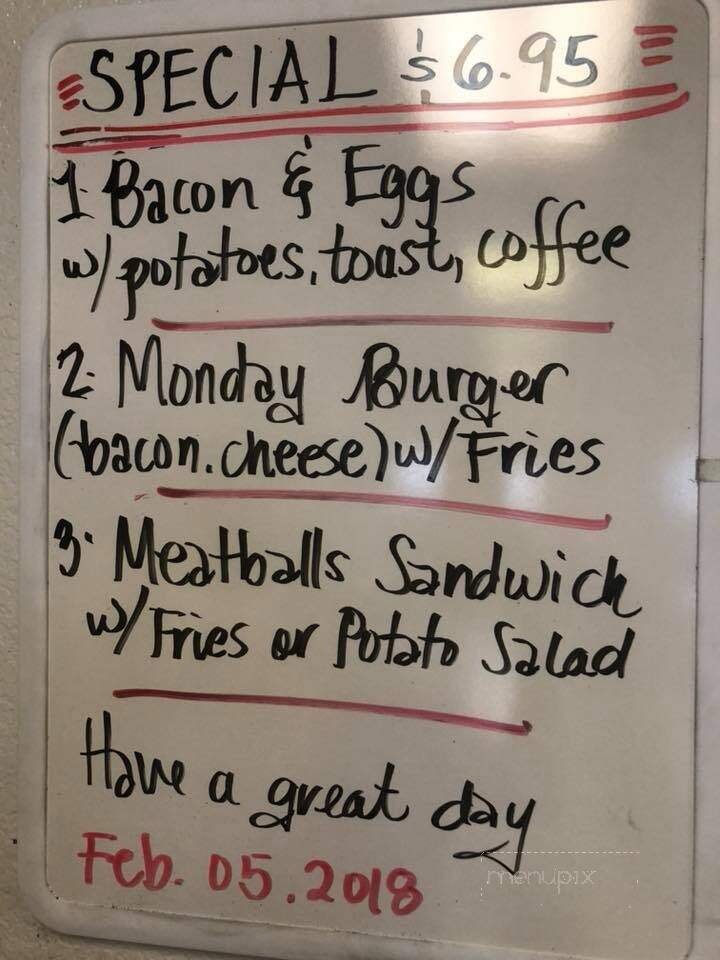 SPECIAL $6.95
1. Bacon & Eggs
w/potatoes, toast, coffee
2. Monday Burger
(bacon.cheese) w/Fries
3. Meatballs Sandwich
w/Fries or Potato Salad
Have a great day
Feb. 05.2018
menupix